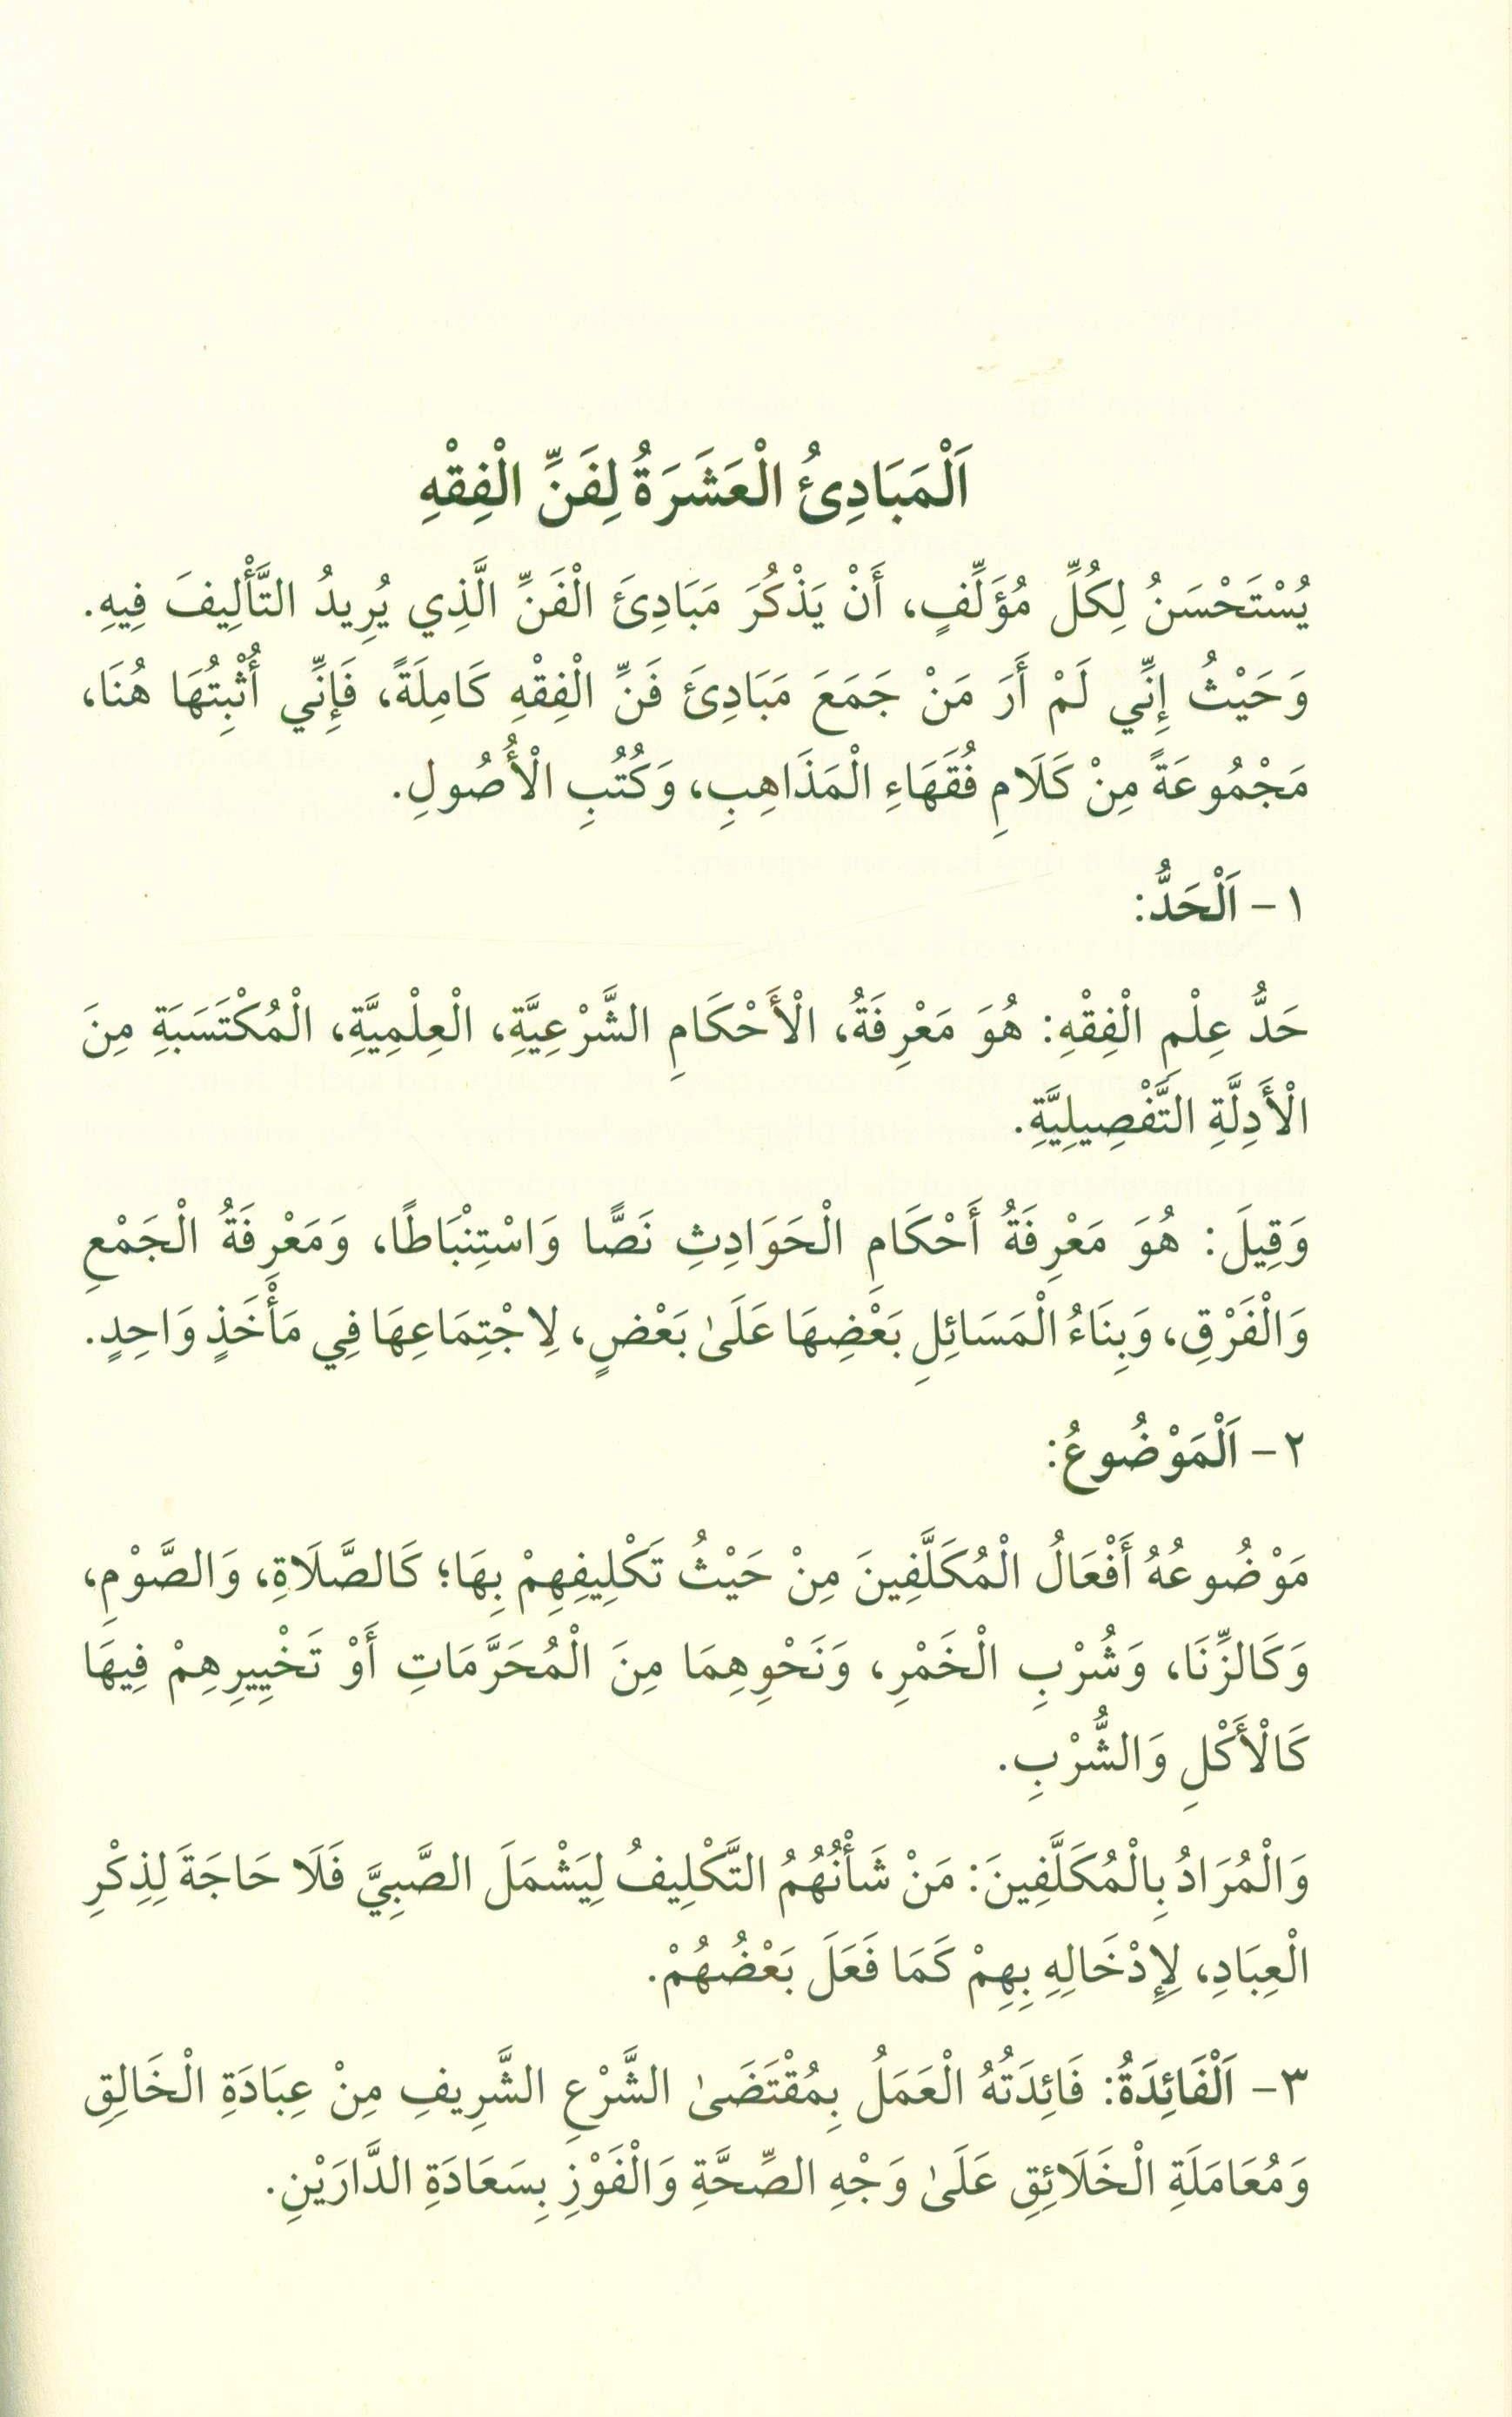 اَلْمَبَادِئُ الْعَشَرَةُ لِفَنِّ الْفِقْهِ
يُسْتَحْسَنُ لِكُلِّ مُؤَلِّفٍ، أَنْ يَذْكُرَ مَبَادِئَ الْفَنِّ الَّذِي يُرِيدُ التَّأْلِيفَ فِيهِ.
وَحَيْثُ إِنِّي لَمْ أَرَ مَنْ جَمَعَ مَبَادِئَ فَنِّ الْفِقْهِ كَامِلَةً، فَإِنِّي أُثْبِتُهَا هُنَا،
مَجْمُوعَةً مِنْ كَلَامِ فُقَهَاءِ الْمَذَاهِبِ، وَكُتُبِ الْأُصُولِ.
١- اَلْحَدُّ:
حَدُّ عِلْمِ الْفِقْهِ: هُوَ مَعْرِفَةُ، الْأَحْكَامِ الشَّرْعِيَّةِ، الْعِلْمِيَّةِ، الْمُكْتَسَبَةِ مِنَ
الْأَدِلَّةِ التَّفْصِيلِيَّةِ.
وَقِيلَ: هُوَ مَعْرِفَةُ أَحْكَامِ الْحَوَادِثِ نَصًّا وَاسْتِنْبَاطًا، وَمَعْرِفَةُ الْجَمْعِ
وَالْفَرْقِ، وَبِنَاءُ الْمَسَائِلِ بَعْضِهَا عَلَىٰ بَعْضٍ، لِاجْتِمَاعِهَا فِي مَأْخَذٍ وَاحِدٍ.
٢- اَلْمَوْضُوعُ:
مَوْضُوعُهُ أَفْعَالُ الْمُكَلَّفِينَ مِنْ حَيْثُ تَكْلِيفِهِمْ بِهَا؛ كَالصَّلَاةِ، وَالصَّوْمِ،
وَكَالزِّنَا، وَشُرْبِ الْخَمْرِ، وَنَحْوِهِمَا مِنَ الْمُحَرَّمَاتِ أَوْ تَخْيِيرِهِمْ فِيهَا
كَالْأَكْلِ وَالشُّرْبِ.
وَالْمُرَادُ بِالْمُكَلَّفِينَ: مَنْ شَأْنُهُمُ التَّكْلِيفُ لِيَشْمَلَ الصَّبِيَّ فَلَا حَاجَةَ لِذِكْرِ
الْعِبَادِ، لِإِدْخَالِهِ بِهِمْ كَمَا فَعَلَ بَعْضُهُمْ.
٣- اَلْفَائِدَةُ: فَائِدَتُهُ الْعَمَلُ بِمُقْتَضَىٰ الشَّرْعِ الشَّرِيفِ مِنْ عِبَادَةِ الْخَالِقِ
وَمُعَامَلَةِ الْخَلَائِقِ عَلَىٰ وَجْهِ الصِّحَّةِ وَالْفَوْزِ بِسَعَادَةِ الدَّارَيْنِ.